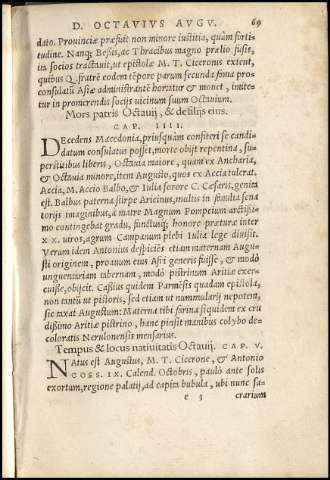 D. OCTAVIVS AVGV. 69
dato. Prouinciæ præfuit non minore iustitia, quàm forti-
tudine. Nanq; Beßis, ac Thracibus magno prælio fusis,
ita socios tractauit, ut epistolæ M. T. Ciceronis extent,
quibus Q. fratrẽ eodem tẽpore parum secunda fama pro-
consulatũ Asiæ administrantẽ hortatur & monet, imite-
tur in promerendis socijs uicinum suum Octauium.
Mors patris Octauij, & de filijs eius.
CAP. IIII.
DEcedens Macedonia, priusquàm confiteri se candi-
datum consulatus posset, morte obijt repentina, su-
perstitibus liberis, Octauia maiore, quam ex Ancharia,
& Octauia minore, item Augusto, quos ex Accia tulerat.
Accia, M. Accio Balbo, & Iulia sorore C. Cæsaris, genita
est. Balbus paterna stirpe Aricinus, multis in familia sena
torijs imaginibus, a matre Magnum Pompeium arctißi-
mo contingebat gradu, functusq; honore præturæ inter
XX. uiros, agrum Campanum plebi Iulia lege diuisit.
Verum idem Antonius despiciẽs etiam maternam Augu-
sti originem, proauum eius Afri generis fuisse, & modò
unguentariam tabernam, modò pistrinum Aritiæ exer-
cuisse, obijcit. Caßius quidem Parmẽsis quadam epistola,
non tantũ ut pistoris, sed etiam ut nummularij nepotem,
sic taxat Augustum: Materna tibi farina siquidem ex cru
dißimo Aritiæ pistrino, hanc pinsit manibus colybo de-
coloratis Nerulonensis mensarius.
Tempus & locus natiuitatis Octauij. CAP. V.
NAtus est Augustus, M. T. Cicerone, & Antonio
COSS. IX. Calend. Octobris, paulò ante solis
exortum, regione palatij, ad capita bubula, ubi nunc sa-
e 3 crarium